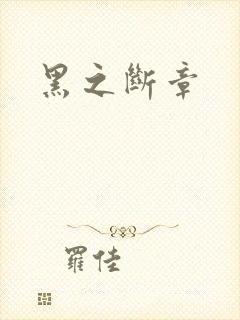 黑之斷章
羅佳